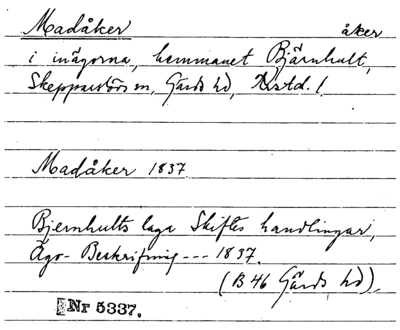 Madåker åker
i inägorna, hemmanet Bjärnhult,
Skepparslövs sn, Gärds hd, Krstd. l.
Madåker 1837
Bjernhults laga Skiftes handlingar,
Ägo-Beskrifning --- 1837.
(B 46 Gärds hd)
Nr 5337.